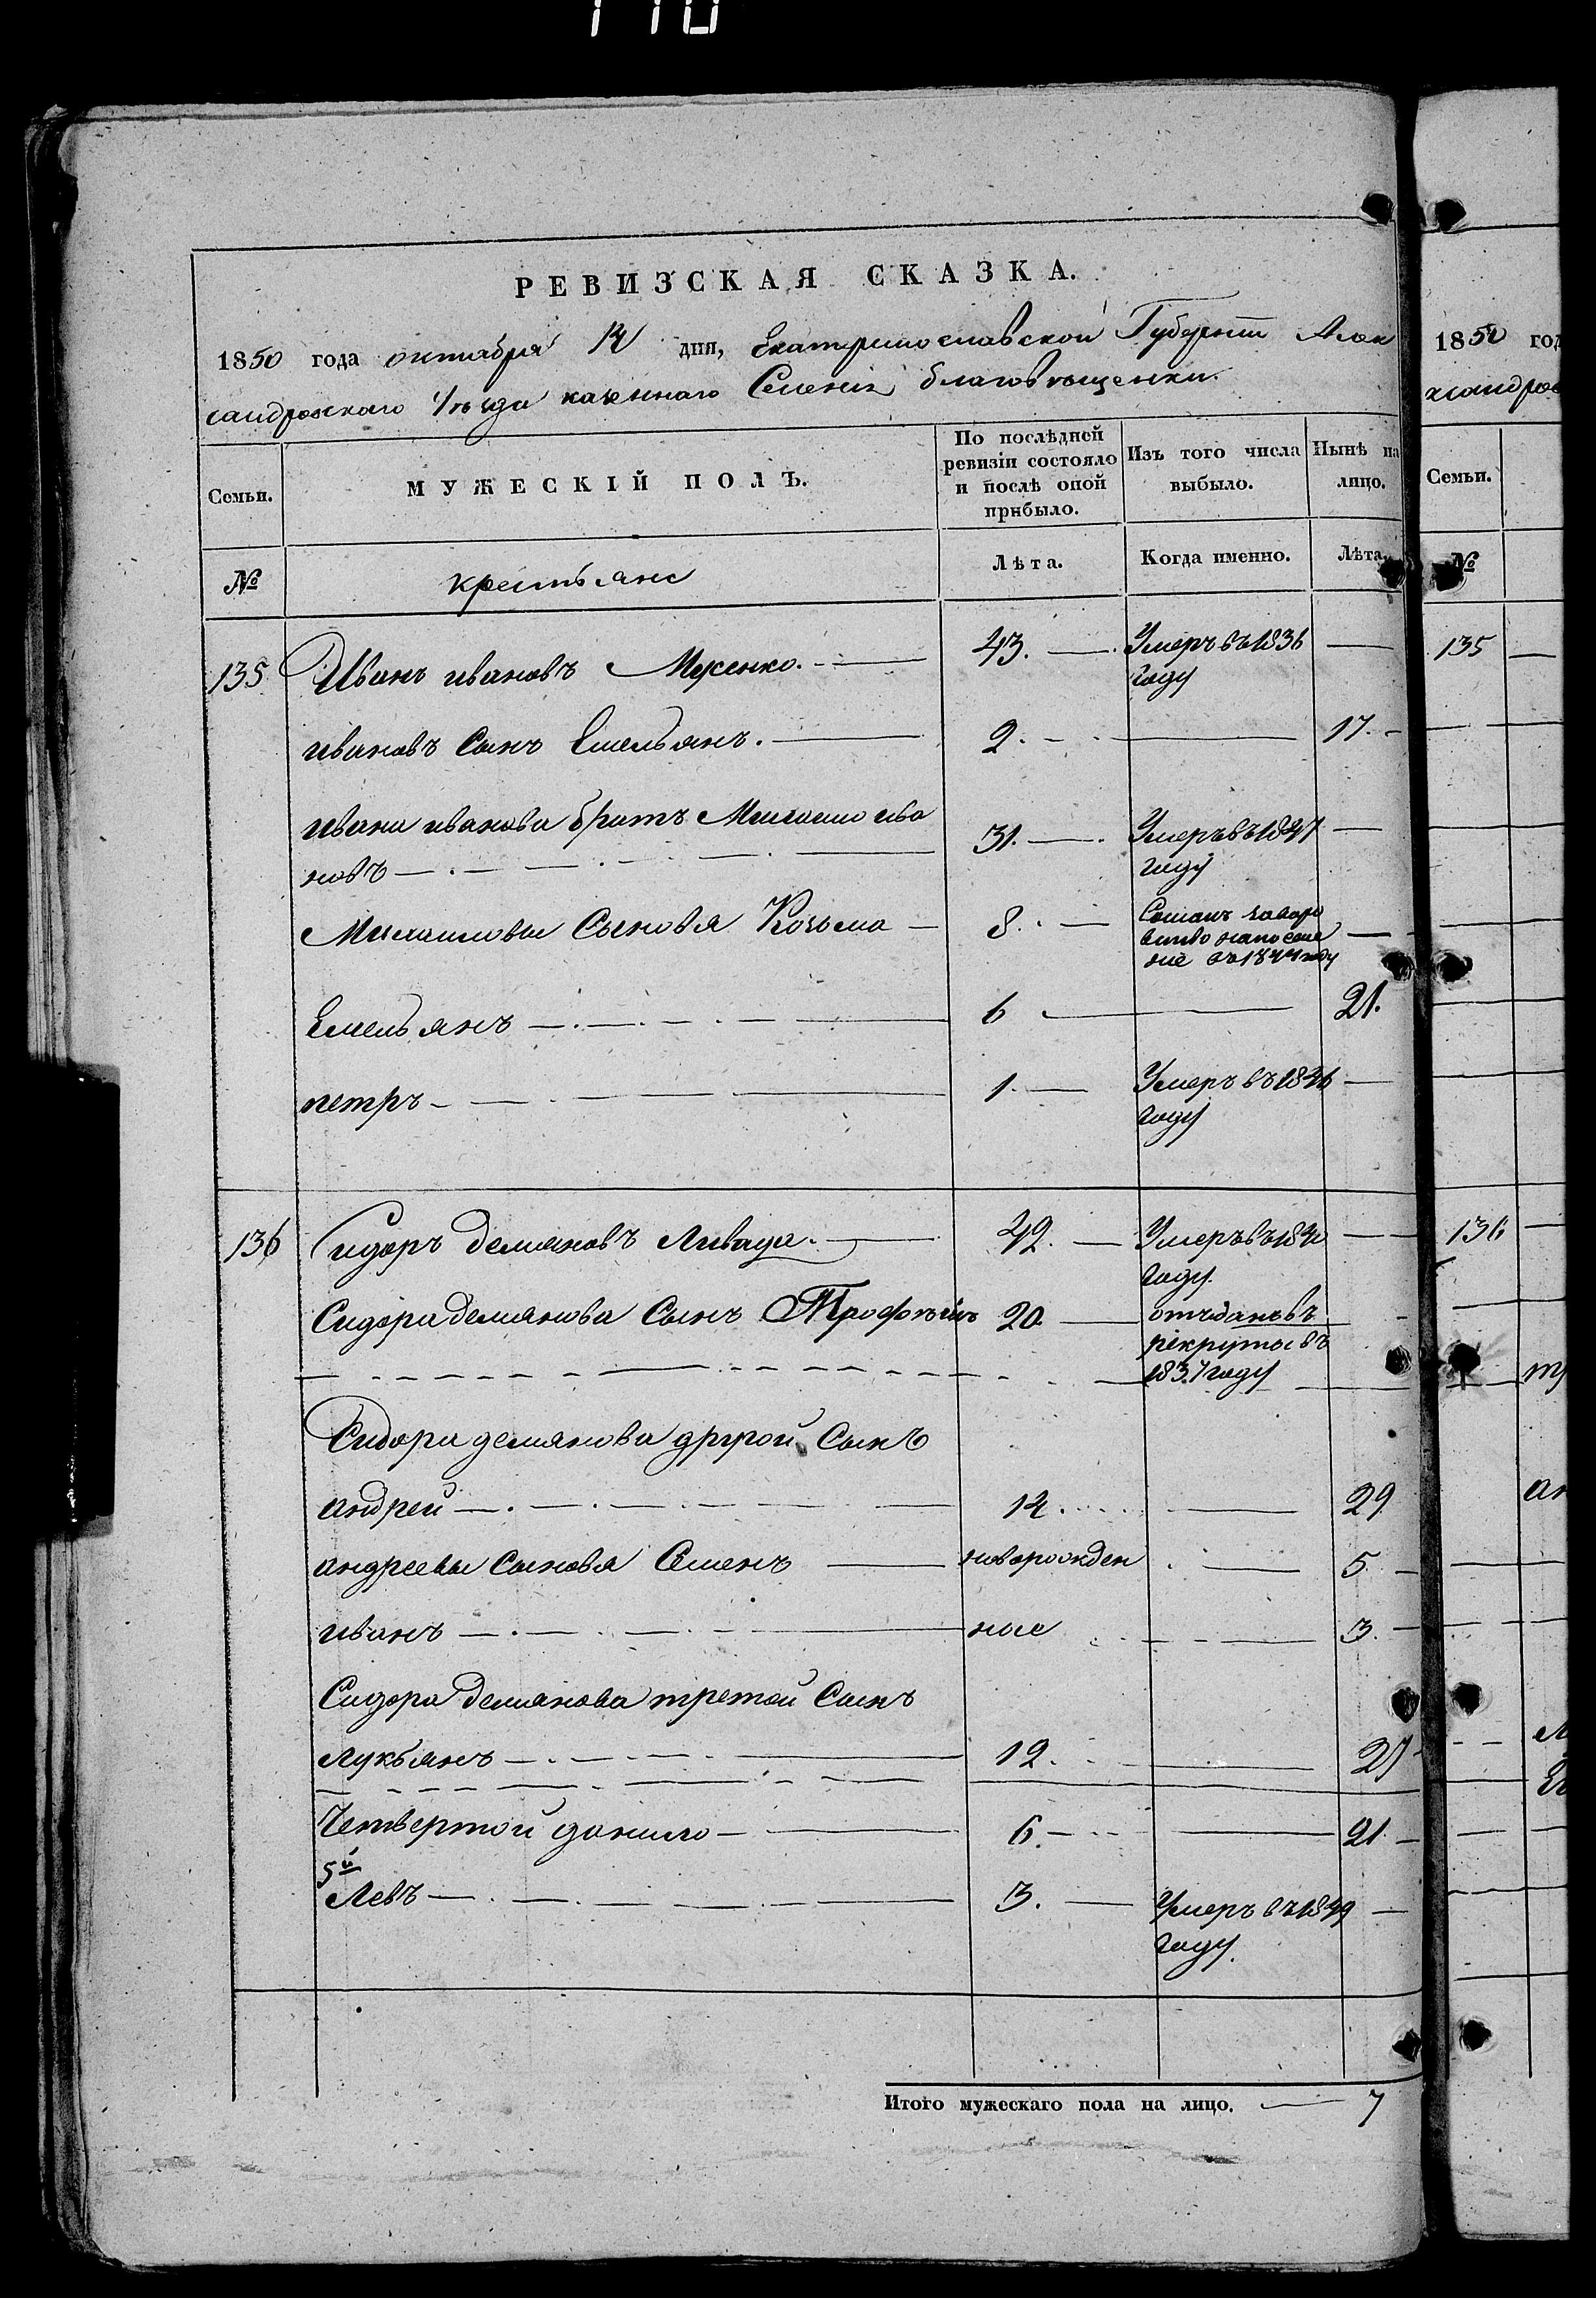 110
РЕВИЗСКАЯ СКАЗКА.
1850 года октября 14 дня, Екатеринославской Губерніи Алек
сандровскаго уѣзда казеннаго Селенія благовѣщенки.
Семьи.
МУЖЕСКІЙ ПОЛЪ.
По послѣдней ревизіи состояло и послѣ оной прибыло.
Изъ того числа выбыло.
Нынѣ на лицо.
№
крестьяне
Лѣта.
Когда именно.
Лѣта.
135 Иванъ ивановъ Мусенко. 43. Умеръ въ 1836
году
ивановъ сынъ Емельянъ. 2. 17.
ивана иванова братъ Михаило ива
новъ 31. Умеръ въ 1847
году
Михаиловы Сыновя Козьма 8. въ 1844 году
Емельянъ 6 21.
петръ 1. Умеръ въ 1846
году
136 Сидоръ демяновъ Ливада. 49. Умеръ въ 1840
году.
Сидора демянова Сынъ Трофимъ 20. отъданъ въ
рекруты въ
1837 году
Сидора демянова другой Сынъ
андрей 14. 29
андреевы Сыновя Семенъ новорожден 5
иванъ ные 3.
Сидора демянова третой Сынъ
лукьянъ 12. 27
Четвертой данило 6. 21
5й
Левъ 3. Умеръ въ 1849
году.
Итого мужескаго пола на лицо. 7
1850 год
ксандров
Семьи.
№
135
136